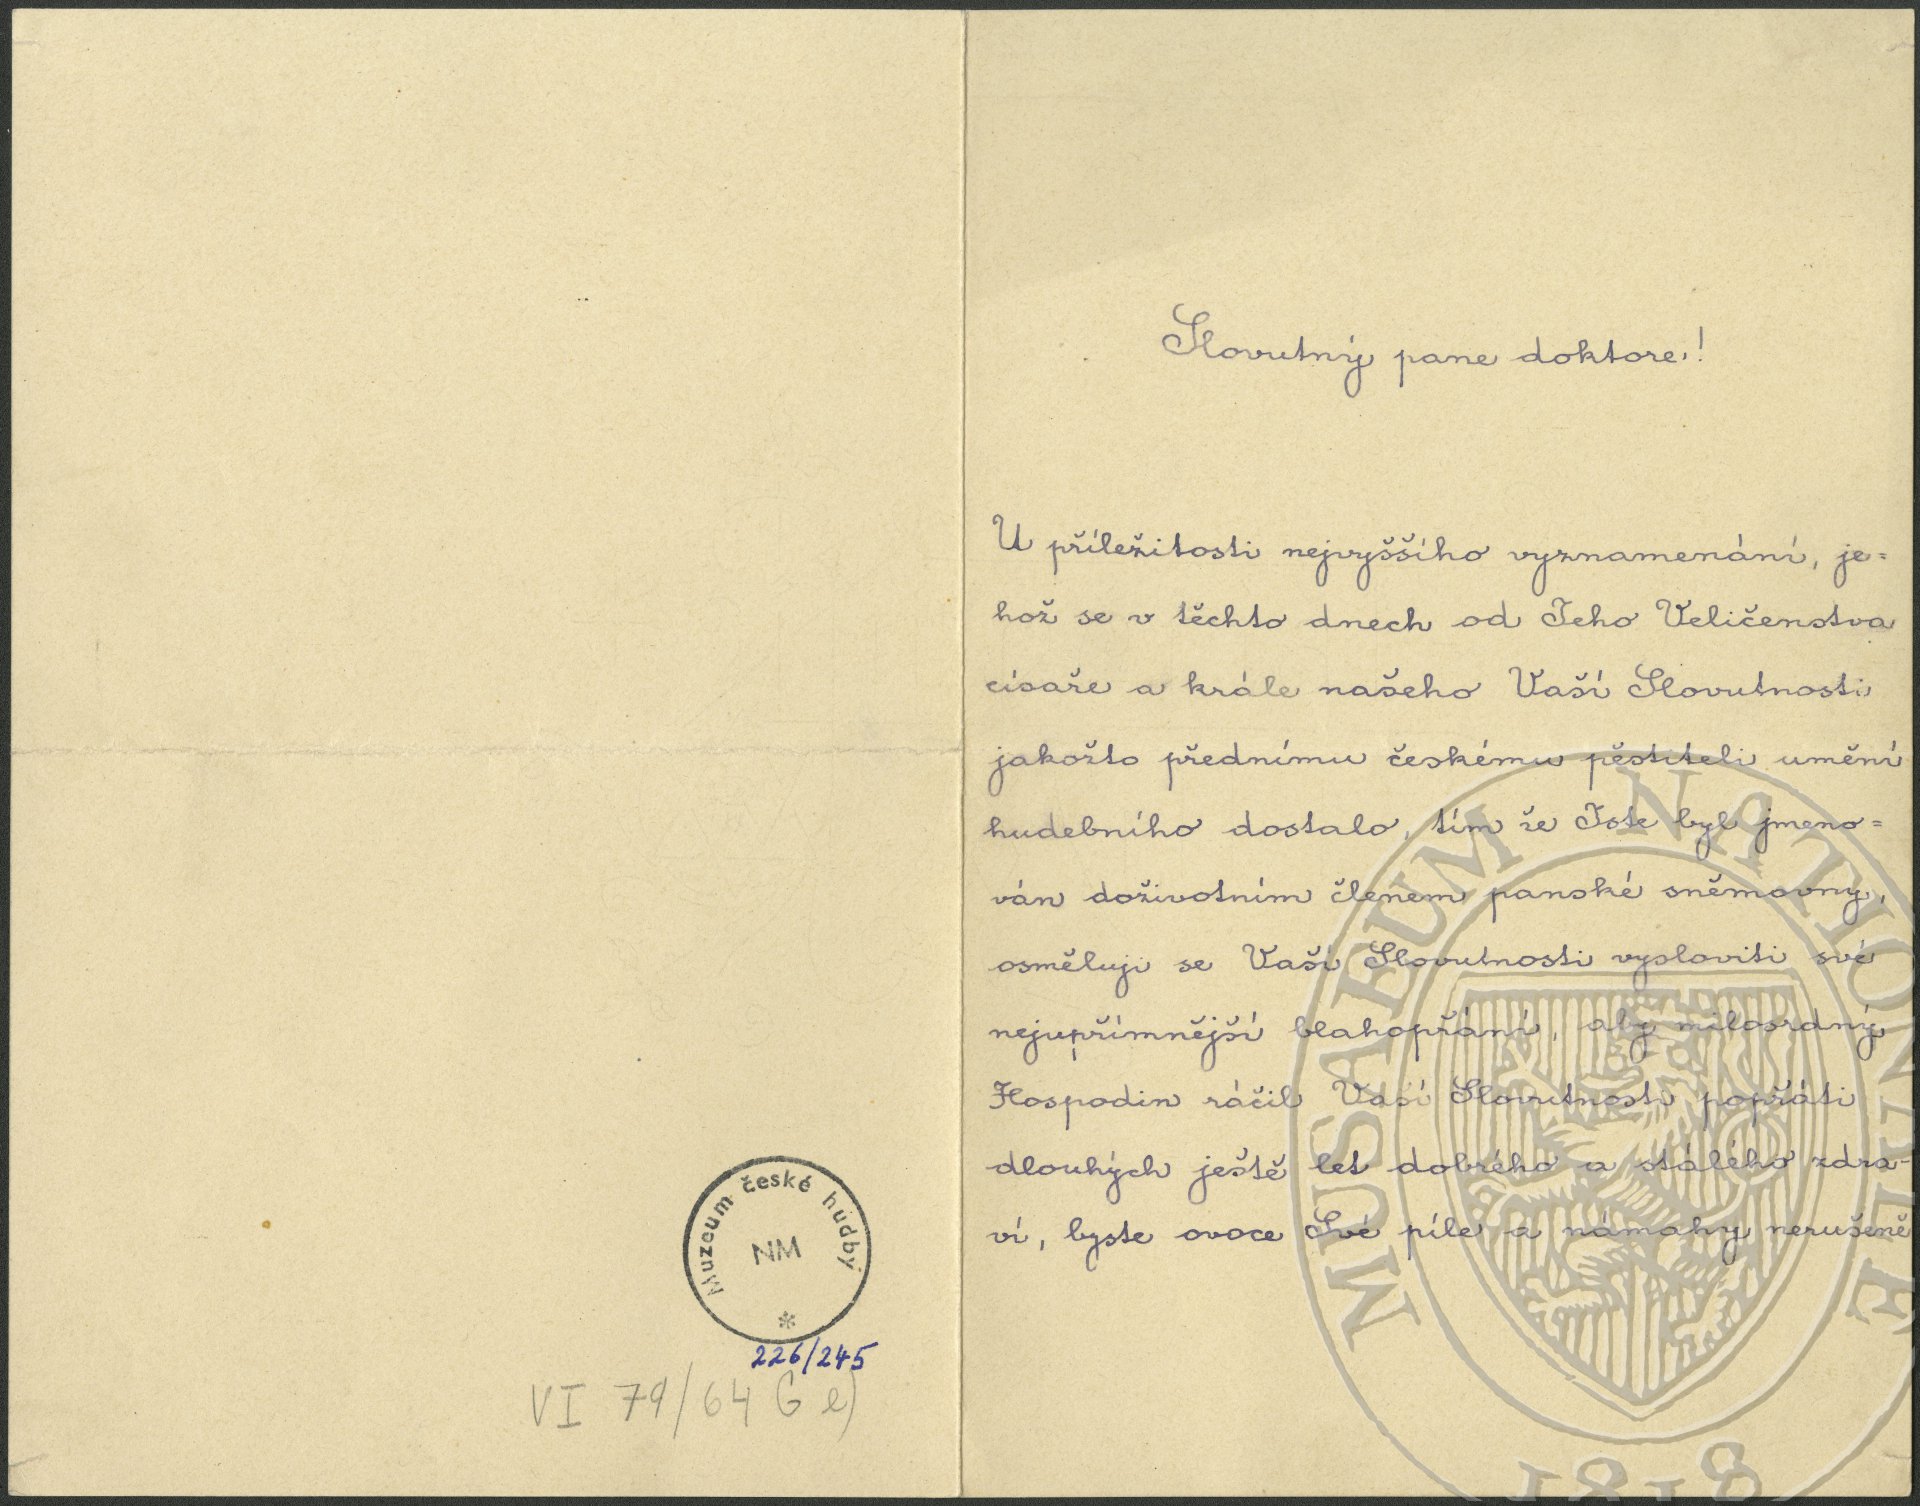 Muzeum české hudby
NM
*
226/245
VI 79/64 G e)
Slovutný pane doktore!
U příležitosti nejvyššího vyznamenání, je=
hož se v těchto dnech od Jeho Veličenstva
císaře a krále našeho Vaší Slovutnosti
jakožto přednímu českému pěstiteli umění
hudebního dostalo, tím že Jste byl jmeno=
ván doživotním členem panské sněmovny,
osměluji se Vaší Slovutnosti vysloviti své
nejupřímnější blahopřání, aby milosrdný
Hospodin ráčil Vaší Slovutnosti popřáti
dlouhých ještě let dobrého a stálého zdra-
ví, byste ovoce Své píle a námahy nerušeně
MUSAEUM NATIONALE
1818